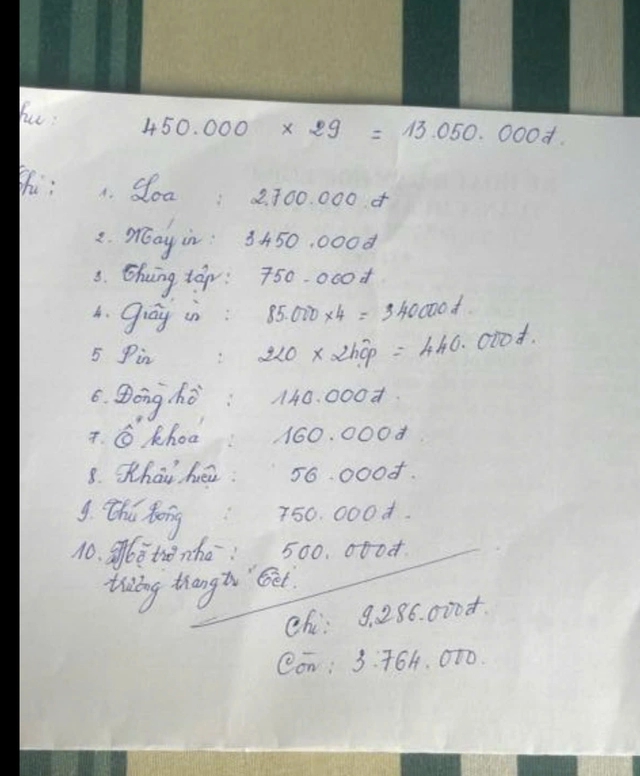 hu: 450.000 × 29 = 13.050.000đ.
Chi: 1. Loa : 2.700.000đ
2. Máy in: 3450.000đ
3. Thùng tập: 750.000đ.
4. Giấy in : 85.000×4 = 340000đ.
5 Pin : 220 × 2hộp = 440.000đ.
6. Đồng hồ : 140.000đ.
7. Ổ khoá : 160.000đ.
8. Khẩu hiệu: 56.000đ.
9. Thú bông : 750.000đ.
10. Hỗ trợ nhà : 500.000đ.
trường trang trí Tết.
Chi: 9,286.000đ.
Còn: 3.764.000.